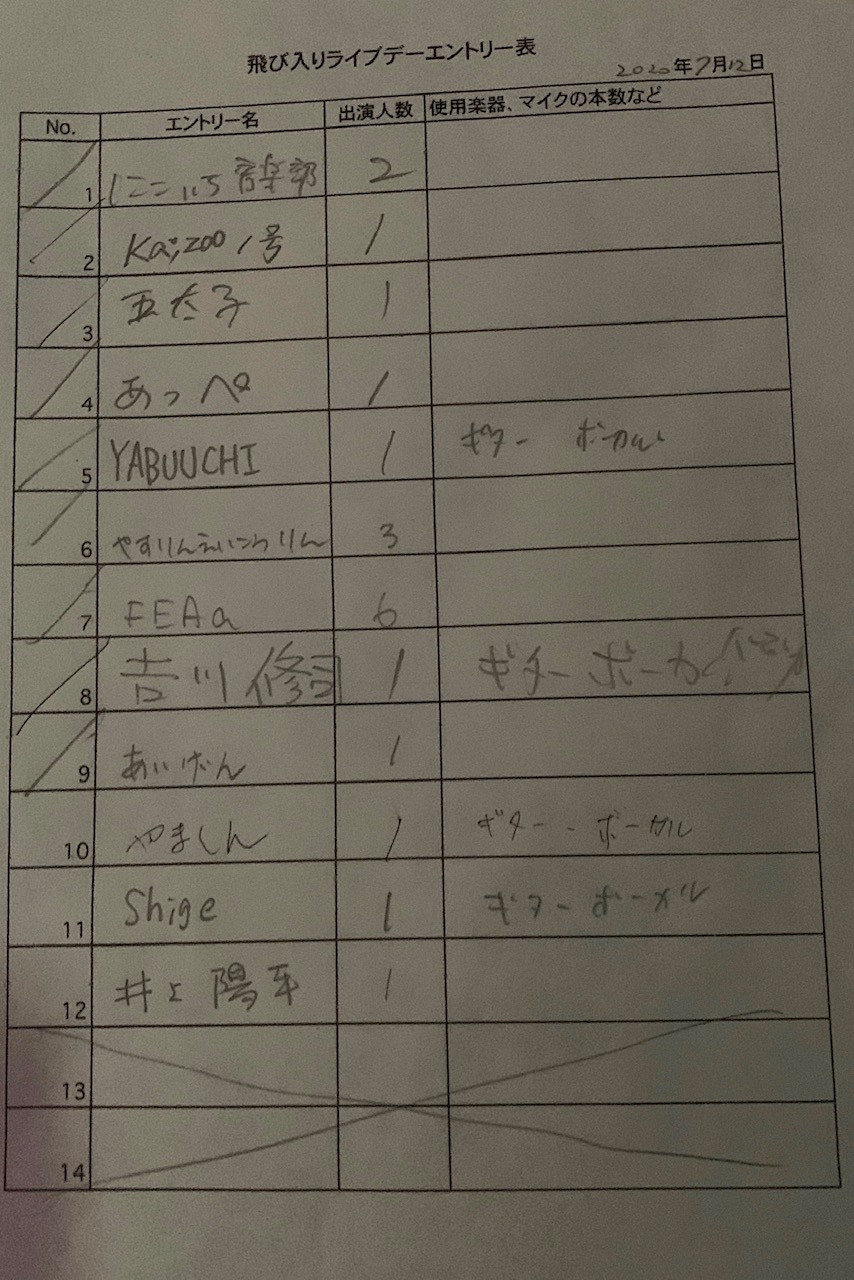 飛び入りライブデーエントリー表
2020年7月12日
No. エントリー名 出演人数 使用楽器、マイクの本数など
1 にこいち音楽部 2
2 Kaizoo1号 1
3 亜太子 1
4 あっぺ 1
5 YABUUCHI 1 ギター ボーカル
6 3
7 FEAa 6
8 吉川修司 1 ギター ボーカル
9 あいげん 1
10 やましん 1 ギター・ボーカル
11 Shige 1 ギターボーカル
12 井上陽平 1
13
14